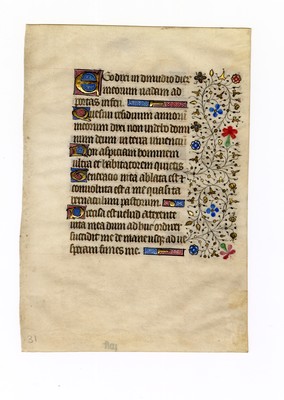 Ego dixi in dimidio dierū
meorum vadam ad
portas inferi.
Quesivi residuum annorū
meorum dixi non videbo domi
num deum in terra viventiū
Non aspiciam hominem
ultra et habitatorem quietis
Generatio mea ablata est et
convoluta est a me quasi ta
bernaculum pastorum.
Precisa est velud a texente
vita mea dum adhuc ordirer
succidit me de mane usq ad ves
peram finies me.
31